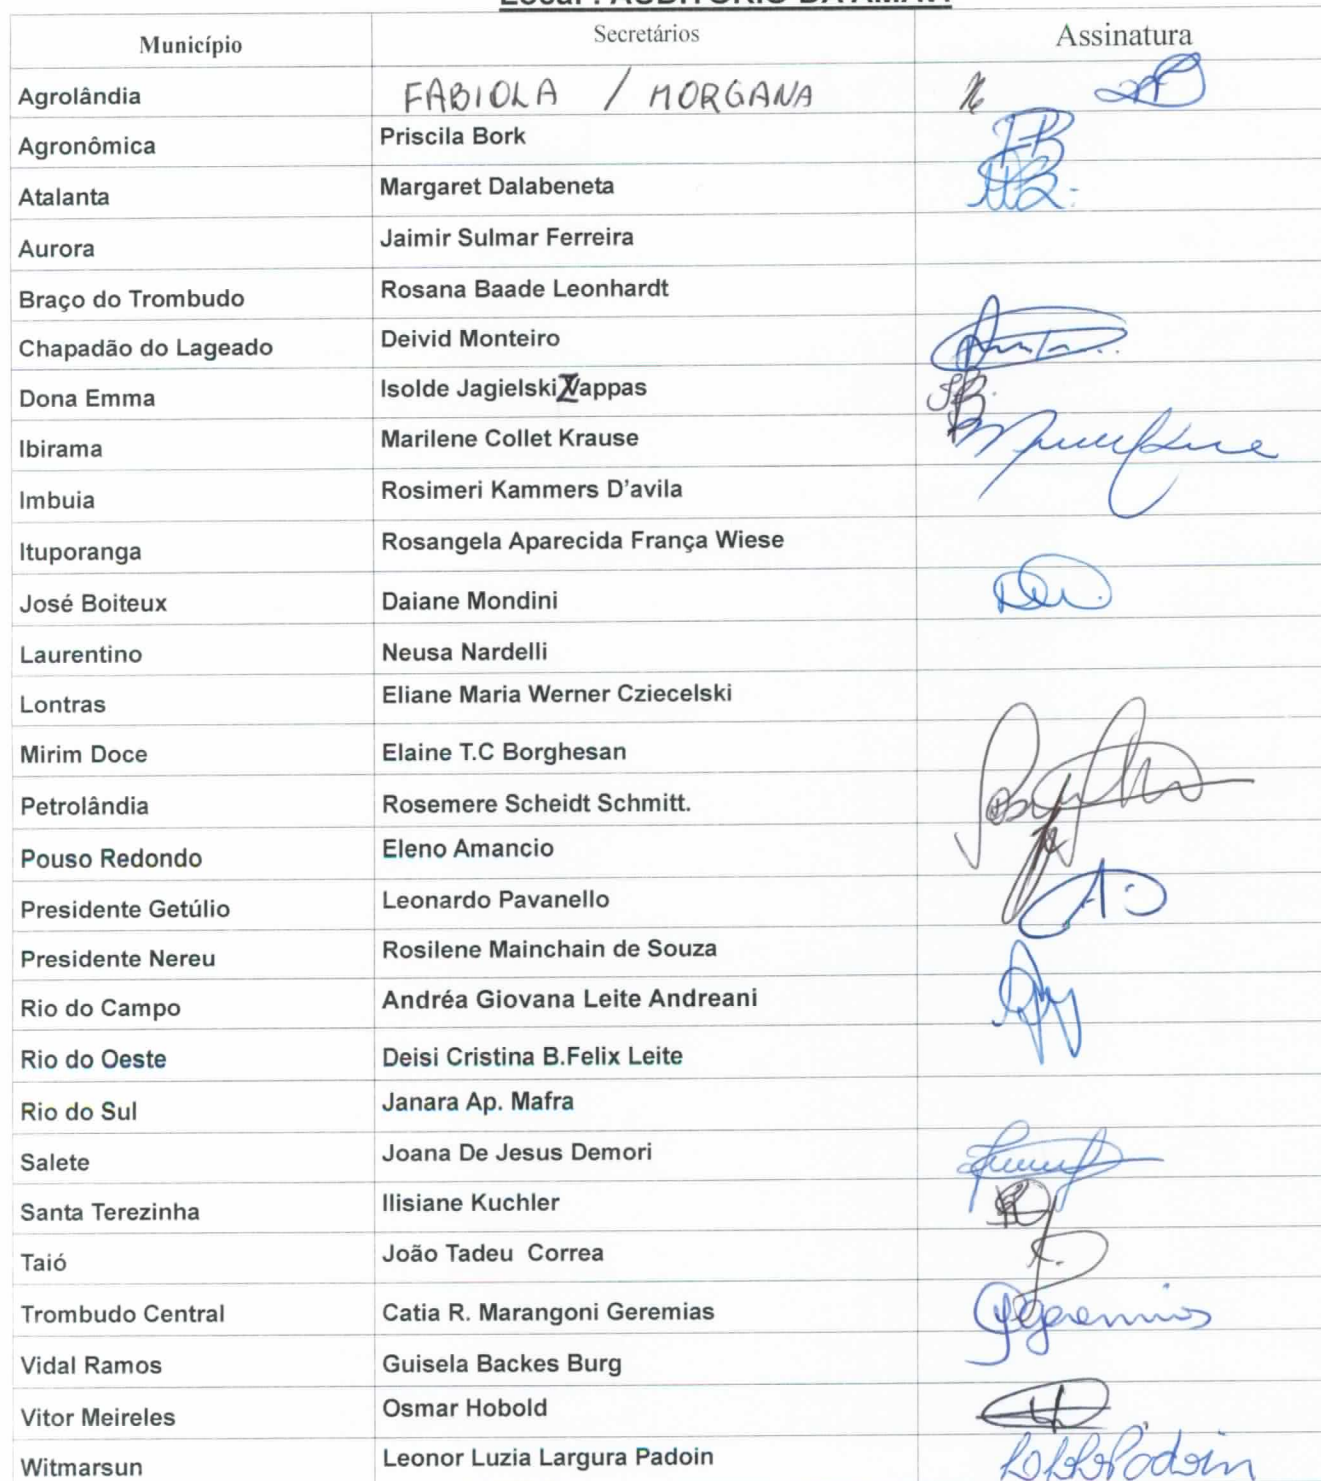 Local : AUDITÓRIO DA AMAVI
Município Secretários Assinatura
Agrolândia FABIOLA / MORGANA
Agronômica Priscila Bork
Atalanta Margaret Dalabeneta
Aurora Jaimir Sulmar Ferreira
Braço do Trombudo Rosana Baade Leonhardt
Chapadão do Lageado Deivid Monteiro
Dona Emma Isolde Jagielski Zappas
Ibirama Marilene Collet Krause
Imbuia Rosimeri Kammers D'avila
Ituporanga Rosangela Aparecida França Wiese
José Boiteux Daiane Mondini
Laurentino Neusa Nardelli
Lontras Eliane Maria Werner Cziecelski
Mirim Doce Elaine T.C Borghesan
Petrolândia Rosemere Scheidt Schmitt.
Pouso Redondo Eleno Amancio
Presidente Getúlio Leonardo Pavanello
Presidente Nereu Rosilene Mainchain de Souza
Rio do Campo Andréa Giovana Leite Andreani
Rio do Oeste Deisi Cristina B.Felix Leite
Rio do Sul Janara Ap. Mafra
Salete Joana De Jesus Demori
Santa Terezinha Ilisiane Kuchler
Taió João Tadeu Correa
Trombudo Central Catia R. Marangoni Geremias Geremias
Vidal Ramos Guisela Backes Burg
Vitor Meireles Osmar Hobold
Witmarsun Leonor Luzia Largura Padoin Padoin